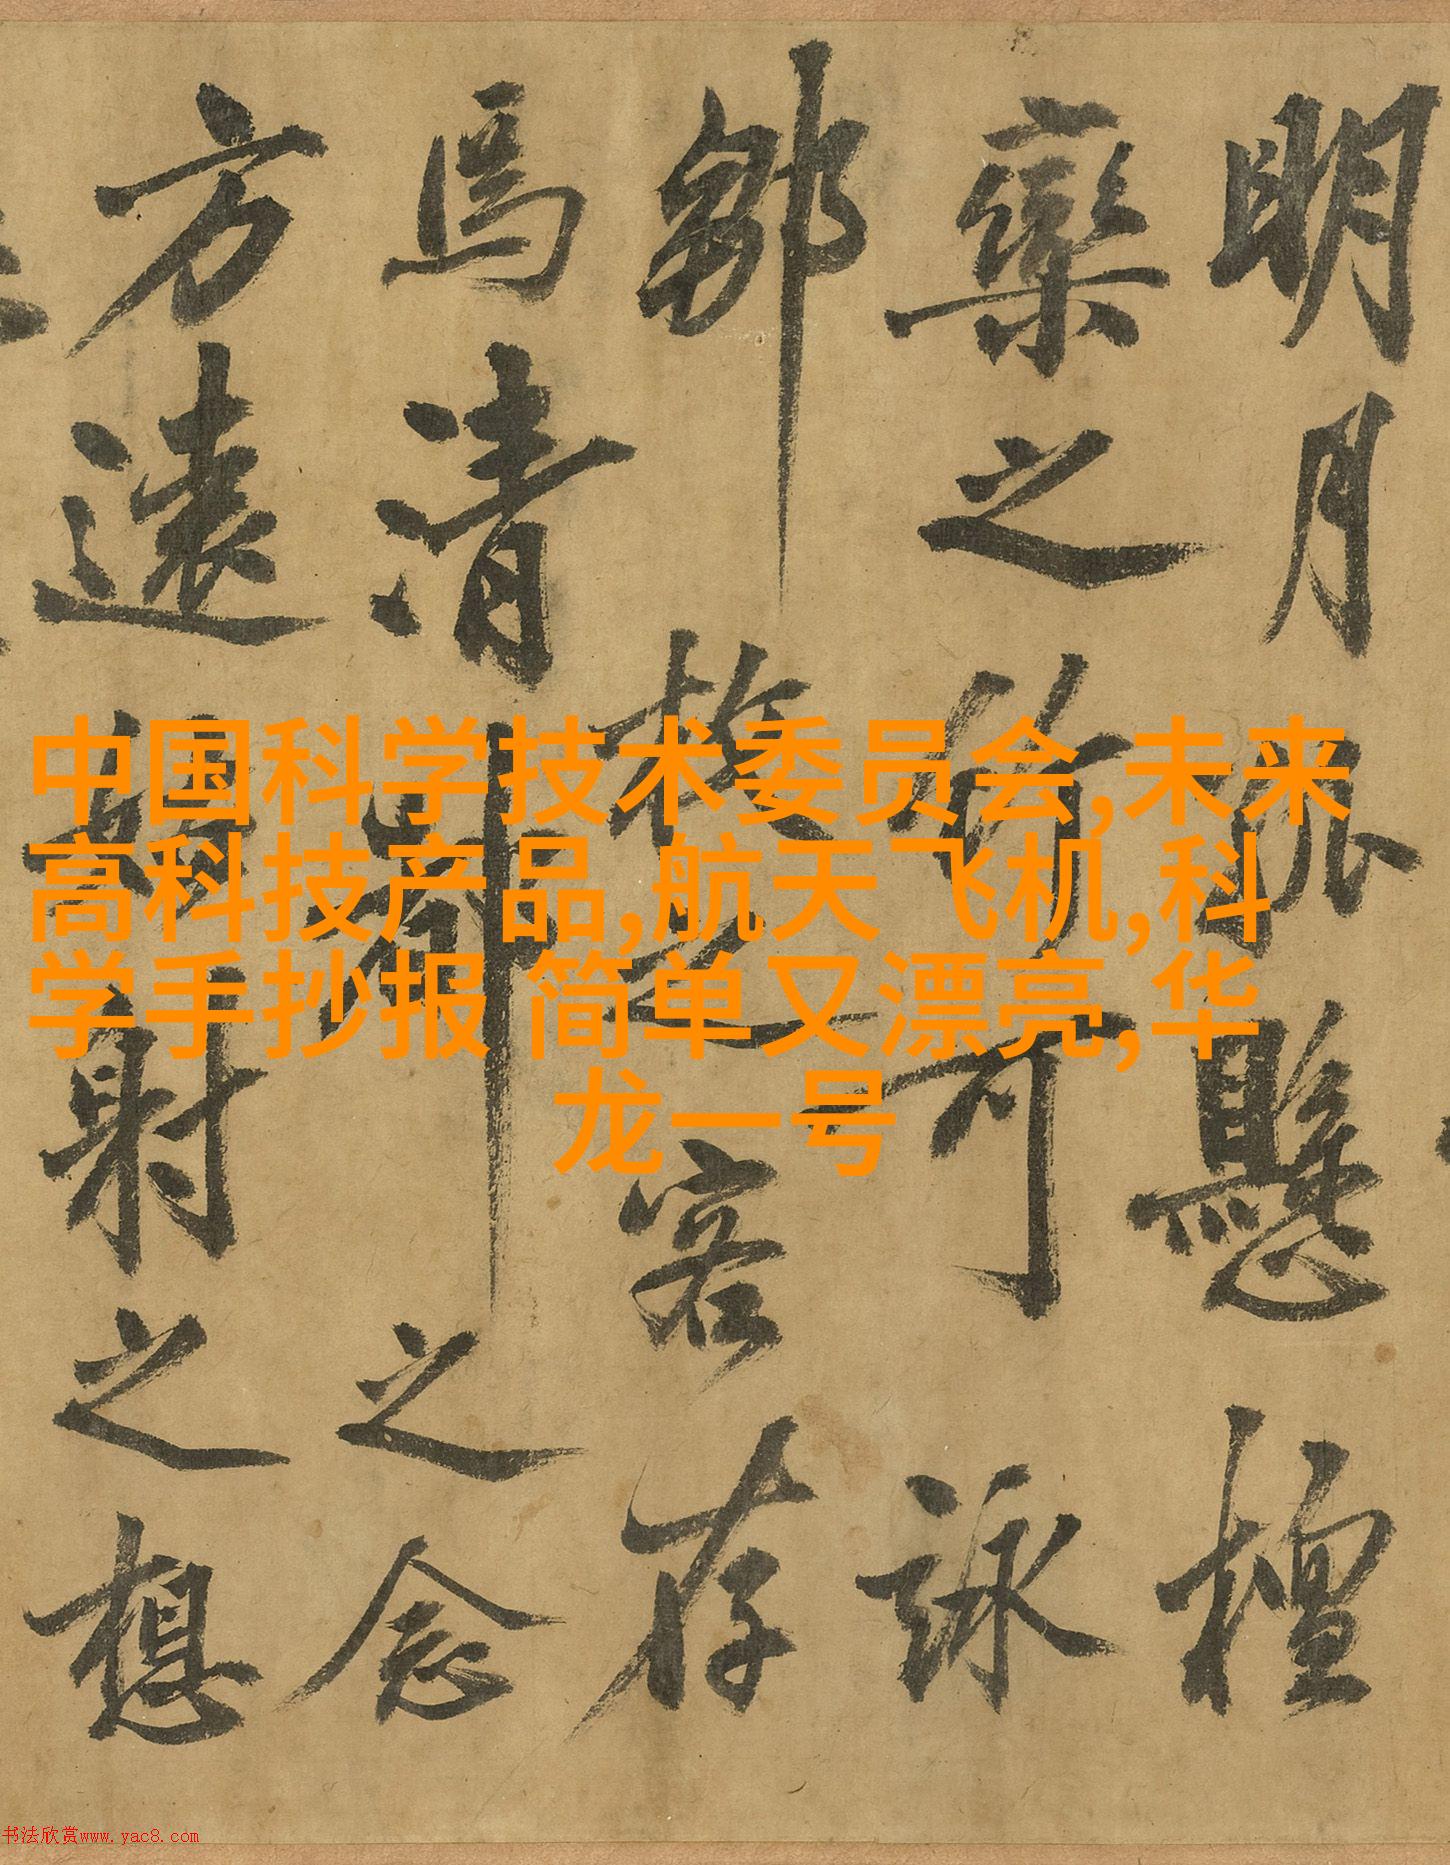 明月孤懸檀
欒之竹可詠
鄒枚之客存
焉清都之念
方遠姑射之想
中国科学技术委员会,未来
高科技产品,航天飞机,科
学手抄报 简单又漂亮,华
龙一号
书法欣赏www.yac8.com